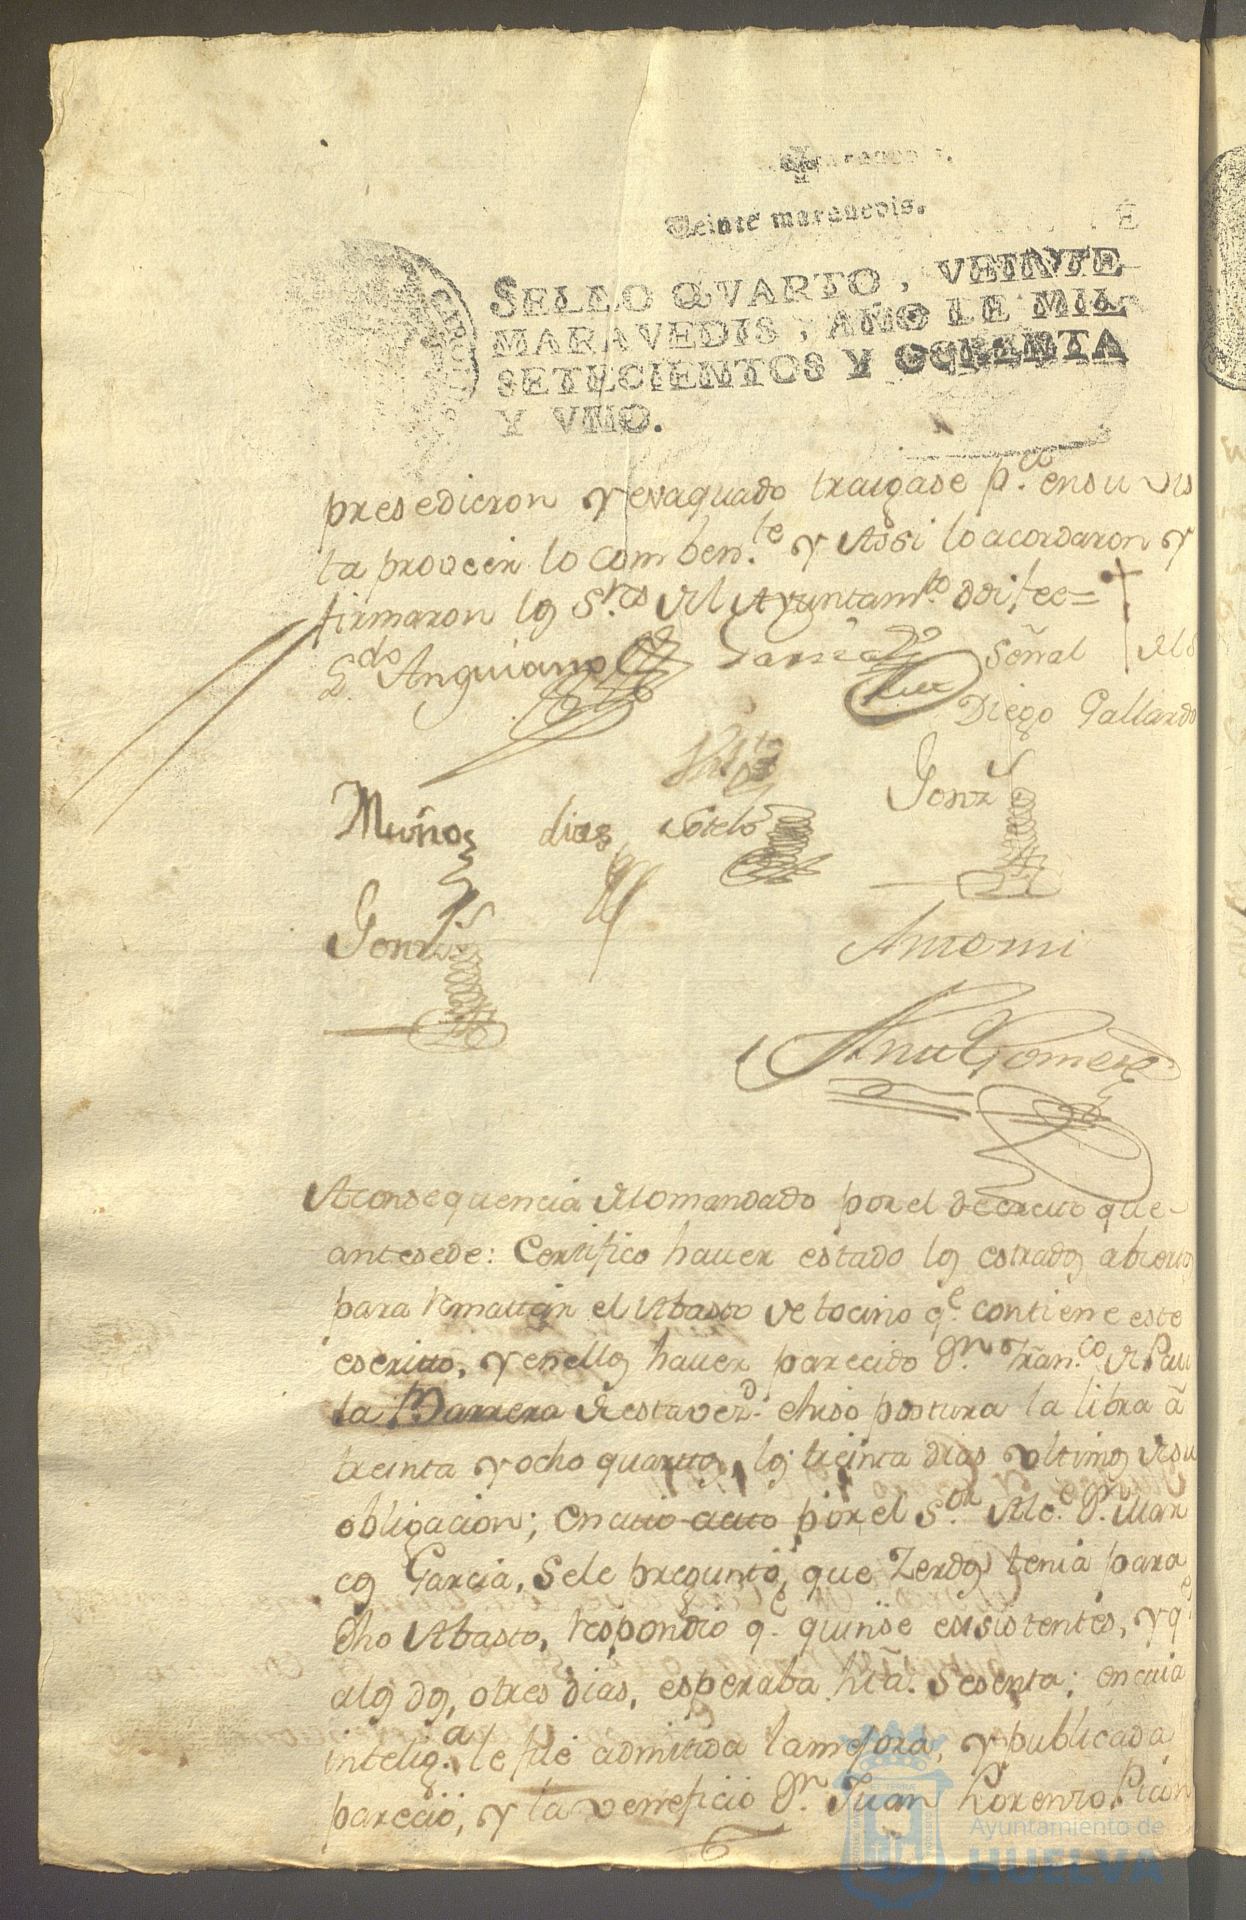 Veinte maravedis.
SELLO QVARTO, VEINTE
MARAVEDIS, AÑO DE MIL
SETECIENTOS Y OCHENTA
Y VNO.
presedieron y evaquado traigase p.ª en su vis
ta proveer lo comben.te y Assi lo acordaron y
firmaron los S.res del Ayuntam.to doi fee=
L.do Anguiano Garcia Señal del S
Diego Gallardo
Muños dias Sotelo Gonz.s
Gonz.s Antemi
Gomez
A consequencia de lo mandado por el decreto que
antesede: Certifico haver estado los estrados abiertos
para rematar el Abasto de tocino q.e contiene este
escrito, y en ellos haver parecido D.n Fran.co de Pau
la Barrera de esta vez.d e hiso postura la libra â
treinta y ocho quartos, los treinta dias ultimos de su
obligacion; En cuio acto por el S.or Alc.e D.n Mar
cos Garcia, Se le preguntó, que Zerdos tenia para
dho Abasto, respondio q.e quinse exsistentes, y q.e
a los dos, o tres dias, esperaba hta. Sesenta; en cuia
intelig.a le fue admitida la mejora, y publicada
pareció, y la veneficio D.n Juan Lorenzo Picon
Ayuntamiento de
HUELVA